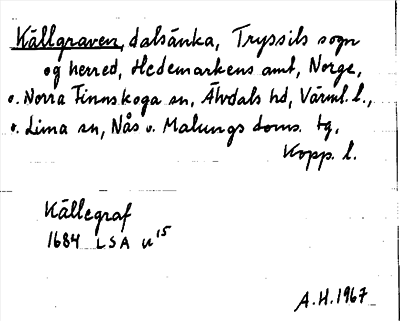 Källgraven, dalsänka, Tryssils sogn
og herred, Hedemarkens amt, Norge,
o. Norra Finnskoga sn, Älvdals hd, Värml. l.,
o. Lima sn, Nås o. Malungs doms. tg,
Kopp. l.
Källegraf
1684 LSA u 15
A.H. 1967